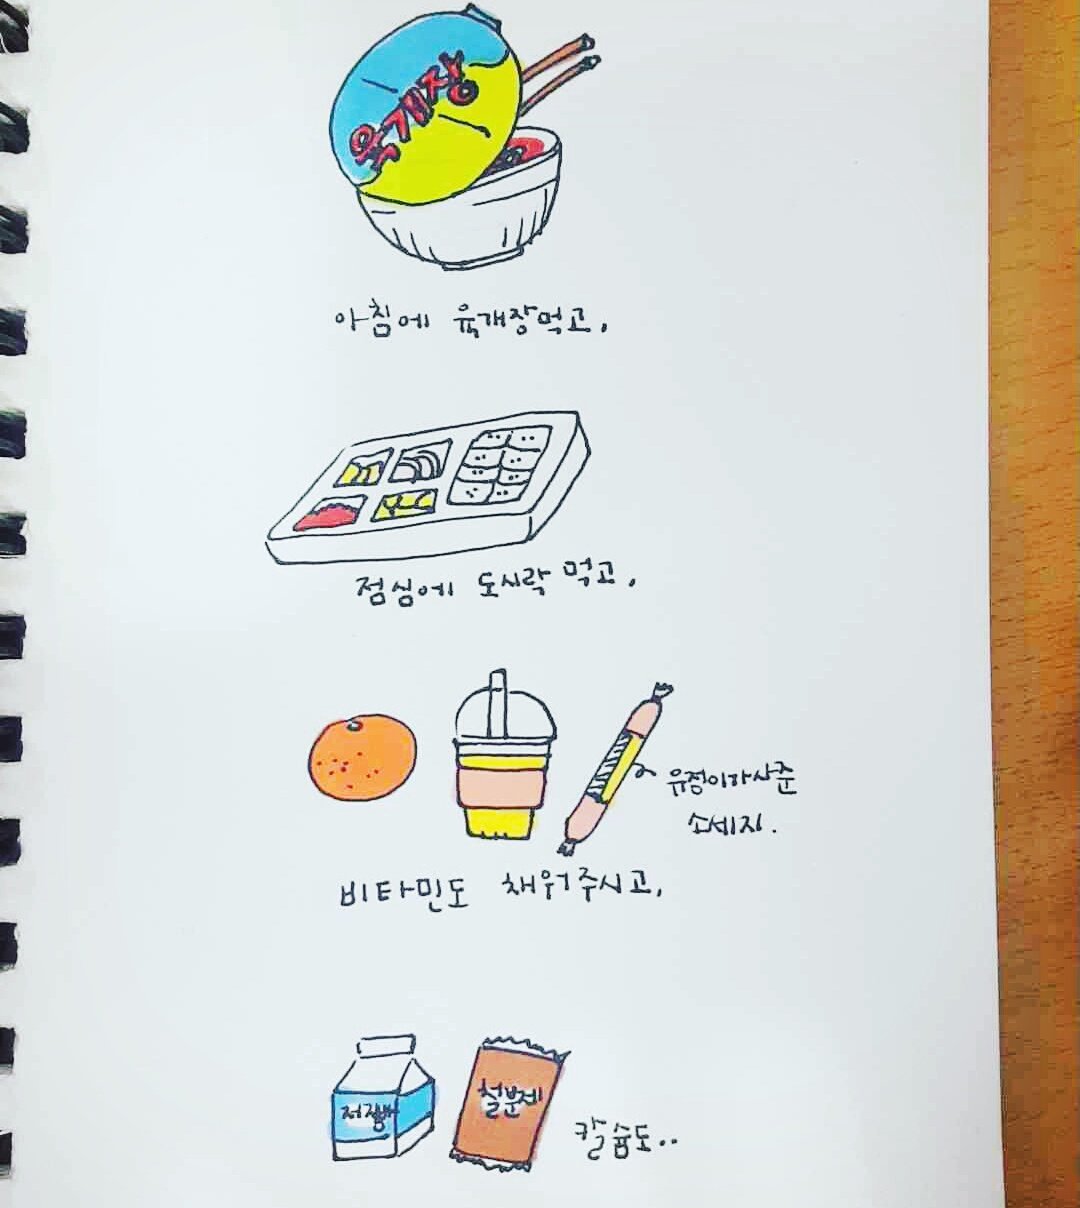 육개장
아침에 육개장먹고,
점심에 도시락 먹고,
유정이가사준
소세지.
비타민도 채워주시고,
저지방
철분제
칼슘도..